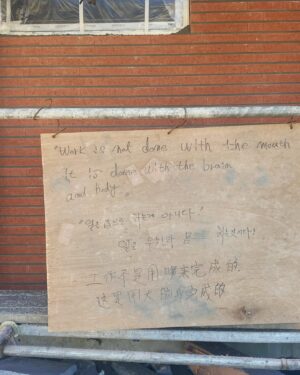 "Work is not done with the mouth
it is done with the brain
and body."
"일은 입으로 하는게 아니다."
일은
工作不是用嘴来完成的
这是用大脑 完成的